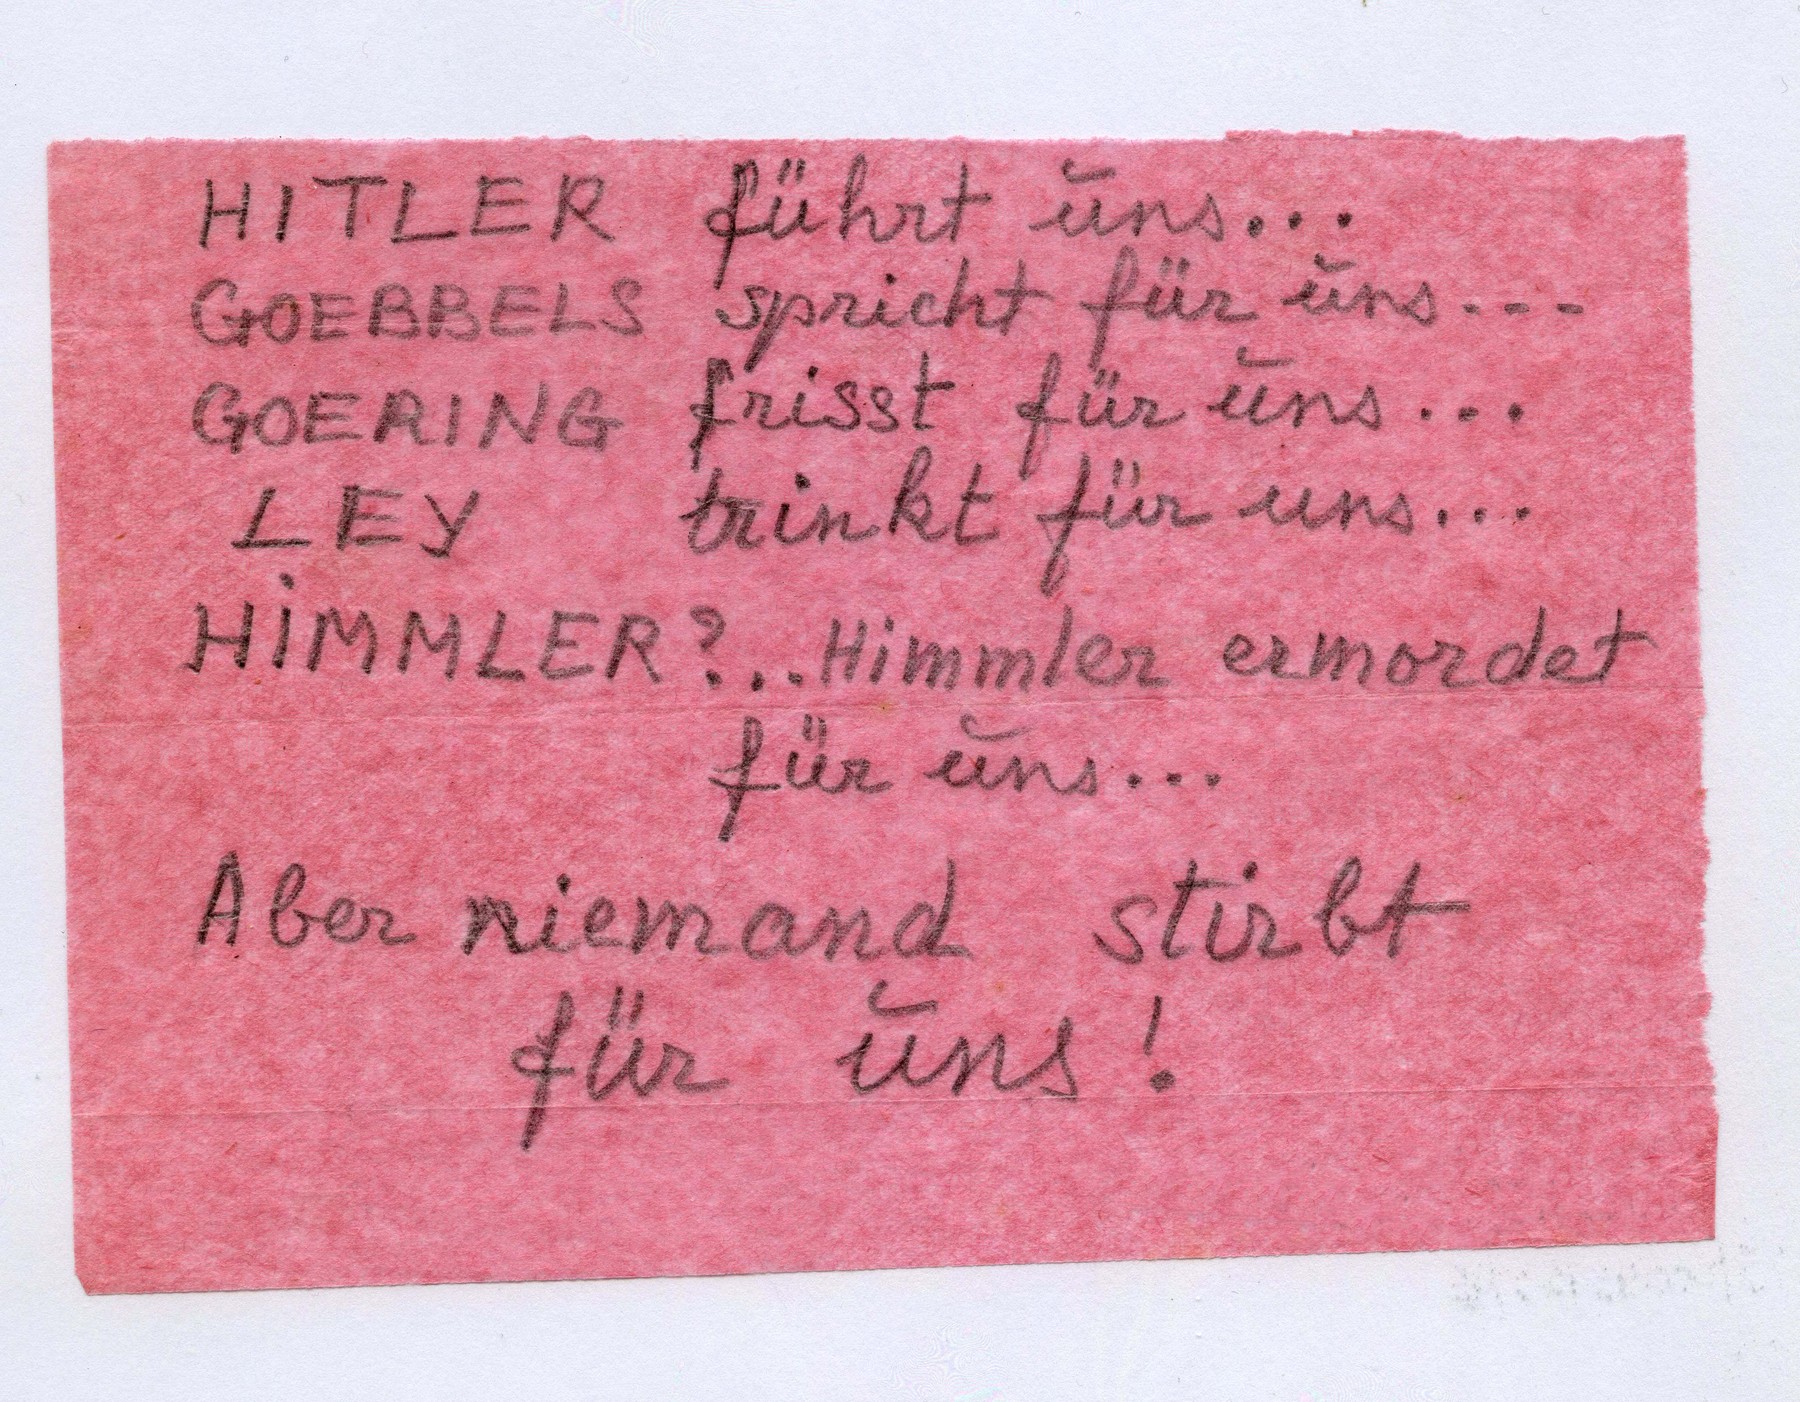 HITLER führt ŭns...
GOEBBELS spricht für ŭns---
GOERING frisst für ŭns...
LEY trinkt für uns...
HIMMLER?...Himmler ermordet
für ŭns...
Aber niemand stirbt
für ŭns!